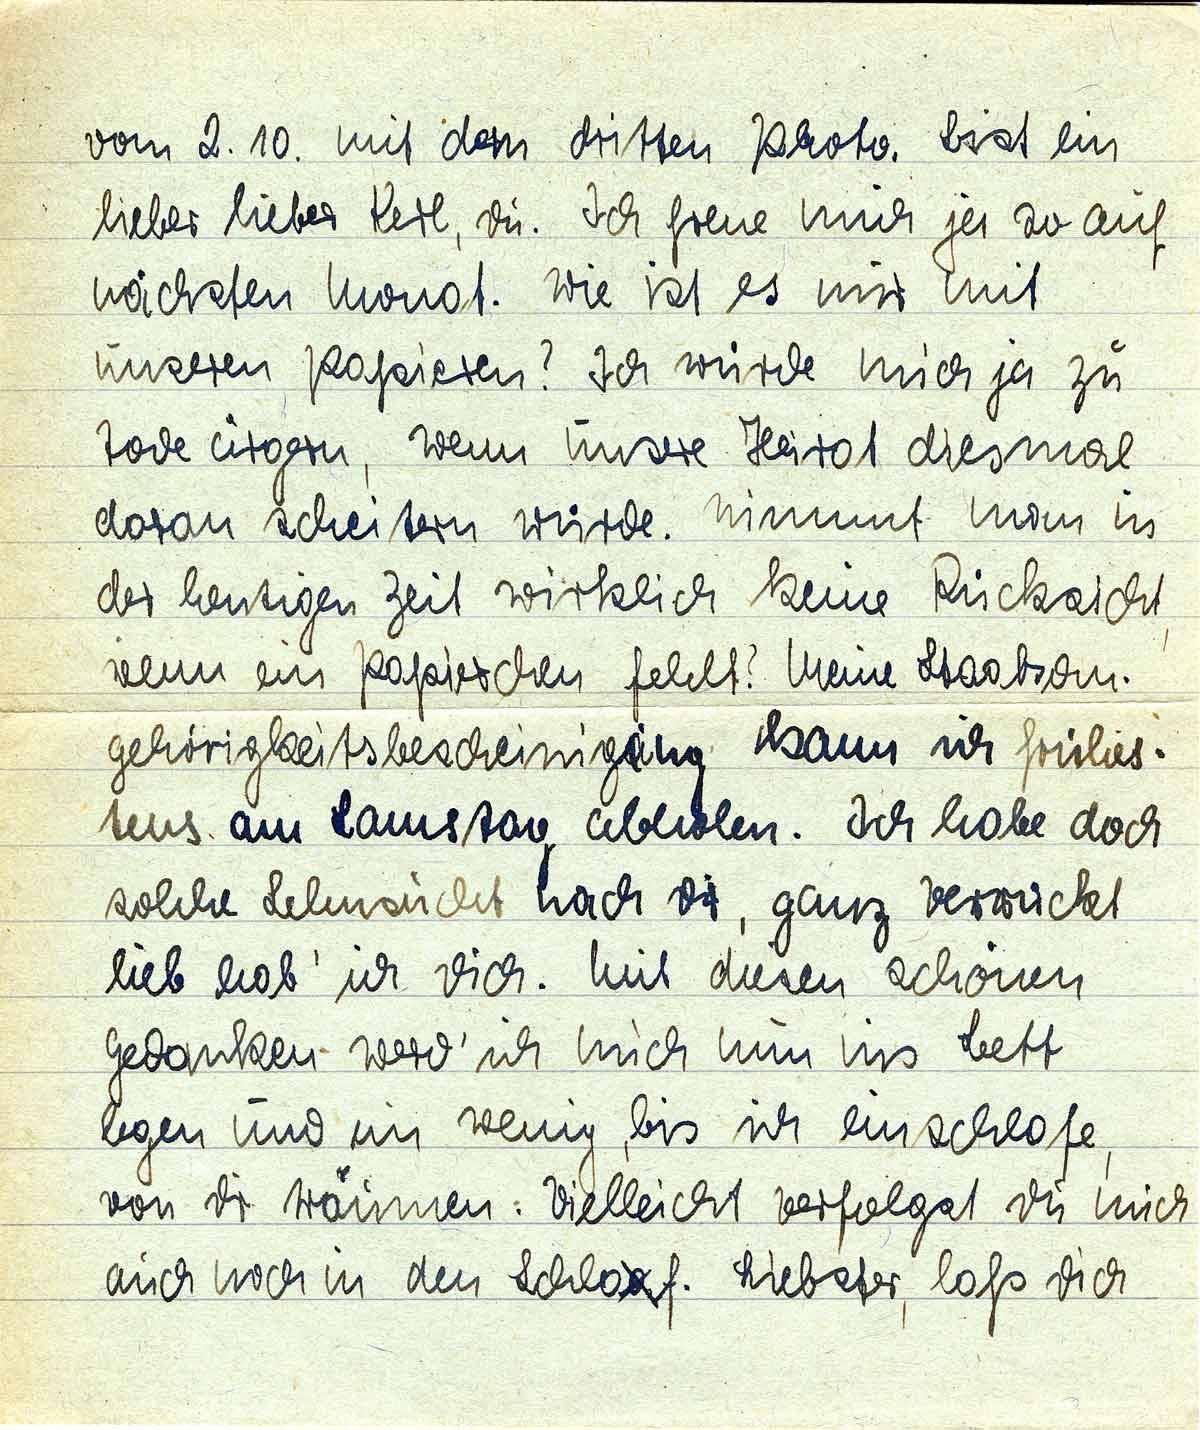 vom 2.10. mit dem dritten Photo. bist ein
lieber lieber Kerl, du. Ich freue mich ja so auf
nächsten Monat. Wie ist es nur mit
unseren Papieren? Ich würde mich ja zu
Tode ärgern, wenn unsere Heirat diesmal
daran scheitern würde. Nimmt man in
der heutigen Zeit wirklich keine Rücksicht,
wenn ein Papierchen fehlt? Meine Staatsan-
gehörigkeitsbescheinigung kann ich frühes-
tens am Samstag abholen. Ich habe doch
solche Sehnsucht nach dir, ganz verrückt
lieb hab' ich dich. Mit diesen schönen
Gedanken werd' ich mich nun ins Bett
legen und ein wenig, bis ich einschlafe,
von dir träumen: Vielleicht verfolgst du mich
auch noch in den Schlaf. Liebster, laß dich